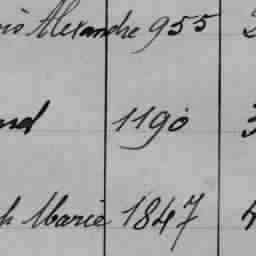 Alexandre 955 2
1190 3
Marie 1847 4